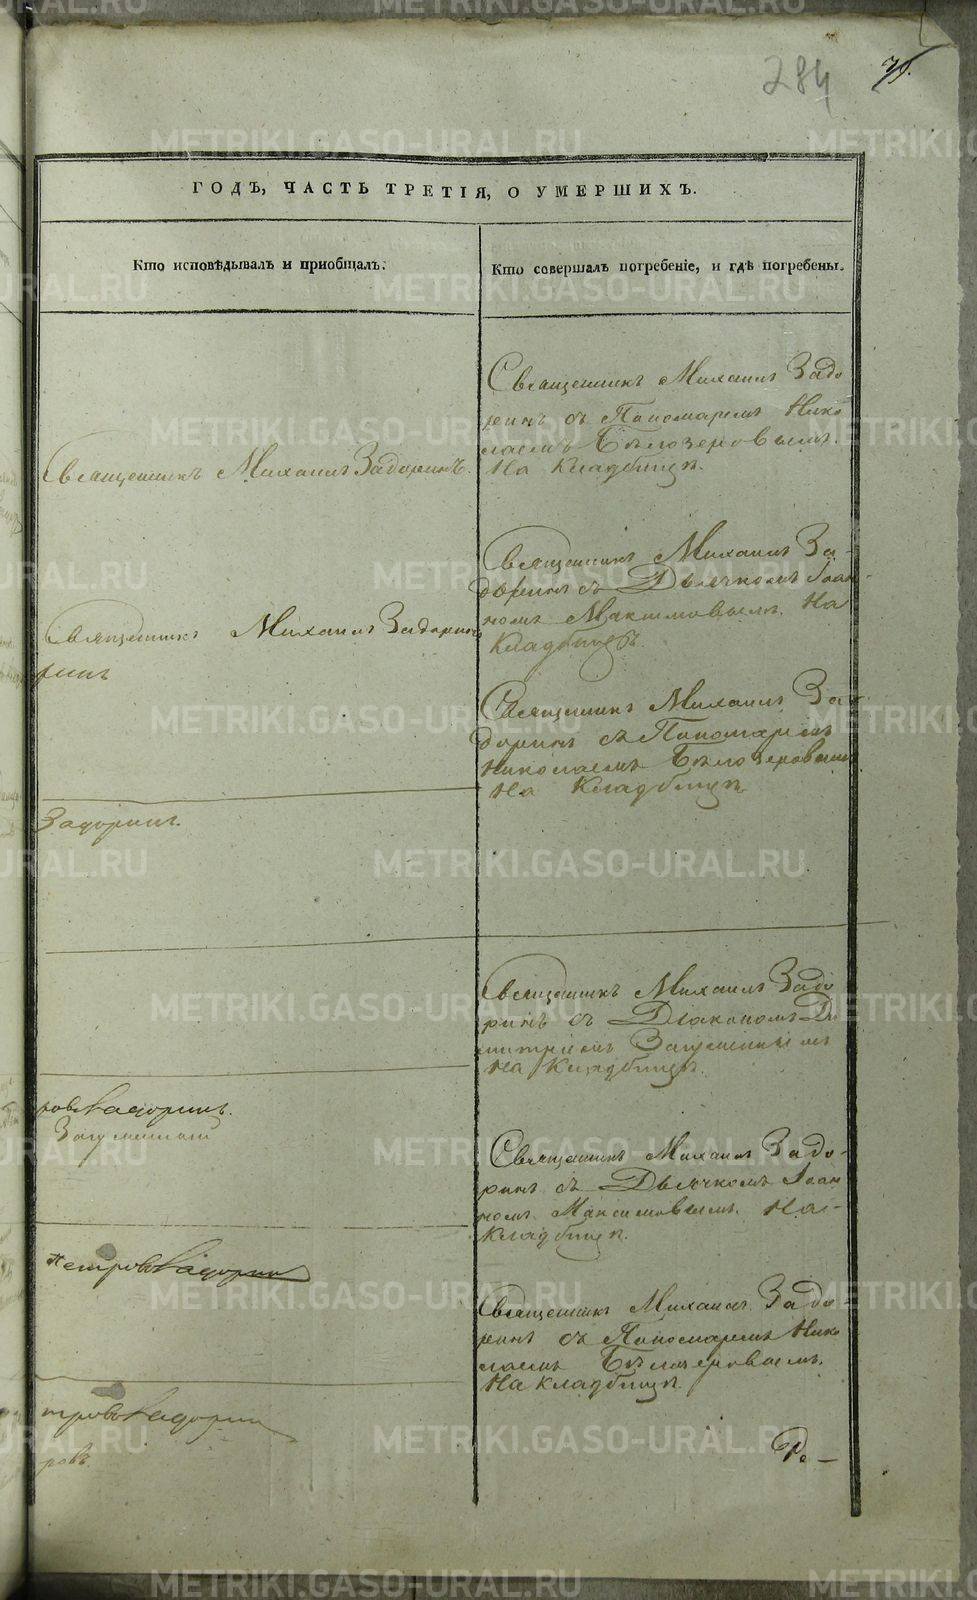 284
ГОДЪ, ЧАСТЬ ТРЕТІЯ, О УМЕРШИХЪ.
Кто исповѣдывалъ и приобщалъ.
Кто совершалъ погребеніе, и гдѣ погребены.
Священникъ Михаилъ Задо
ринъ съ Пономаремъ Нико
лаемъ Бѣлозеровымъ.
На Кладбищѣ.
Священникъ Михаилъ Задоринъ.
Священникъ Михаилъ За-
доринъ съ Дьячкомъ Іоан-
номъ Максимовымъ. На
Кладбищѣ.
Священникъ Михаилъ Задорин
ринъ
Священникъ Михаилъ За-
доринъ съ Пономаремъ
Николаемъ Бѣлозеровымъ
На Кладбищѣ
Задоринъ.
Священникъ Михаилъ Задо
ринъ съ Діакономъ Ди
митріемъ
На Кладбищѣ.
Задоринъ.
Священникъ Михаилъ Задо-
ринъ съ Дьячкомъ Іоан
номъ Максимовымъ. На-
Кладбищѣ.
Петровъ Задорин
Священникъ Михаилъ Задо-
ринъ съ Пономаремъ Нико
лаемъ Бѣлозеровымъ.
На кладбищѣ.
тровъ Задорин
ровъ.
METRIKI.GASO-URAL.RU